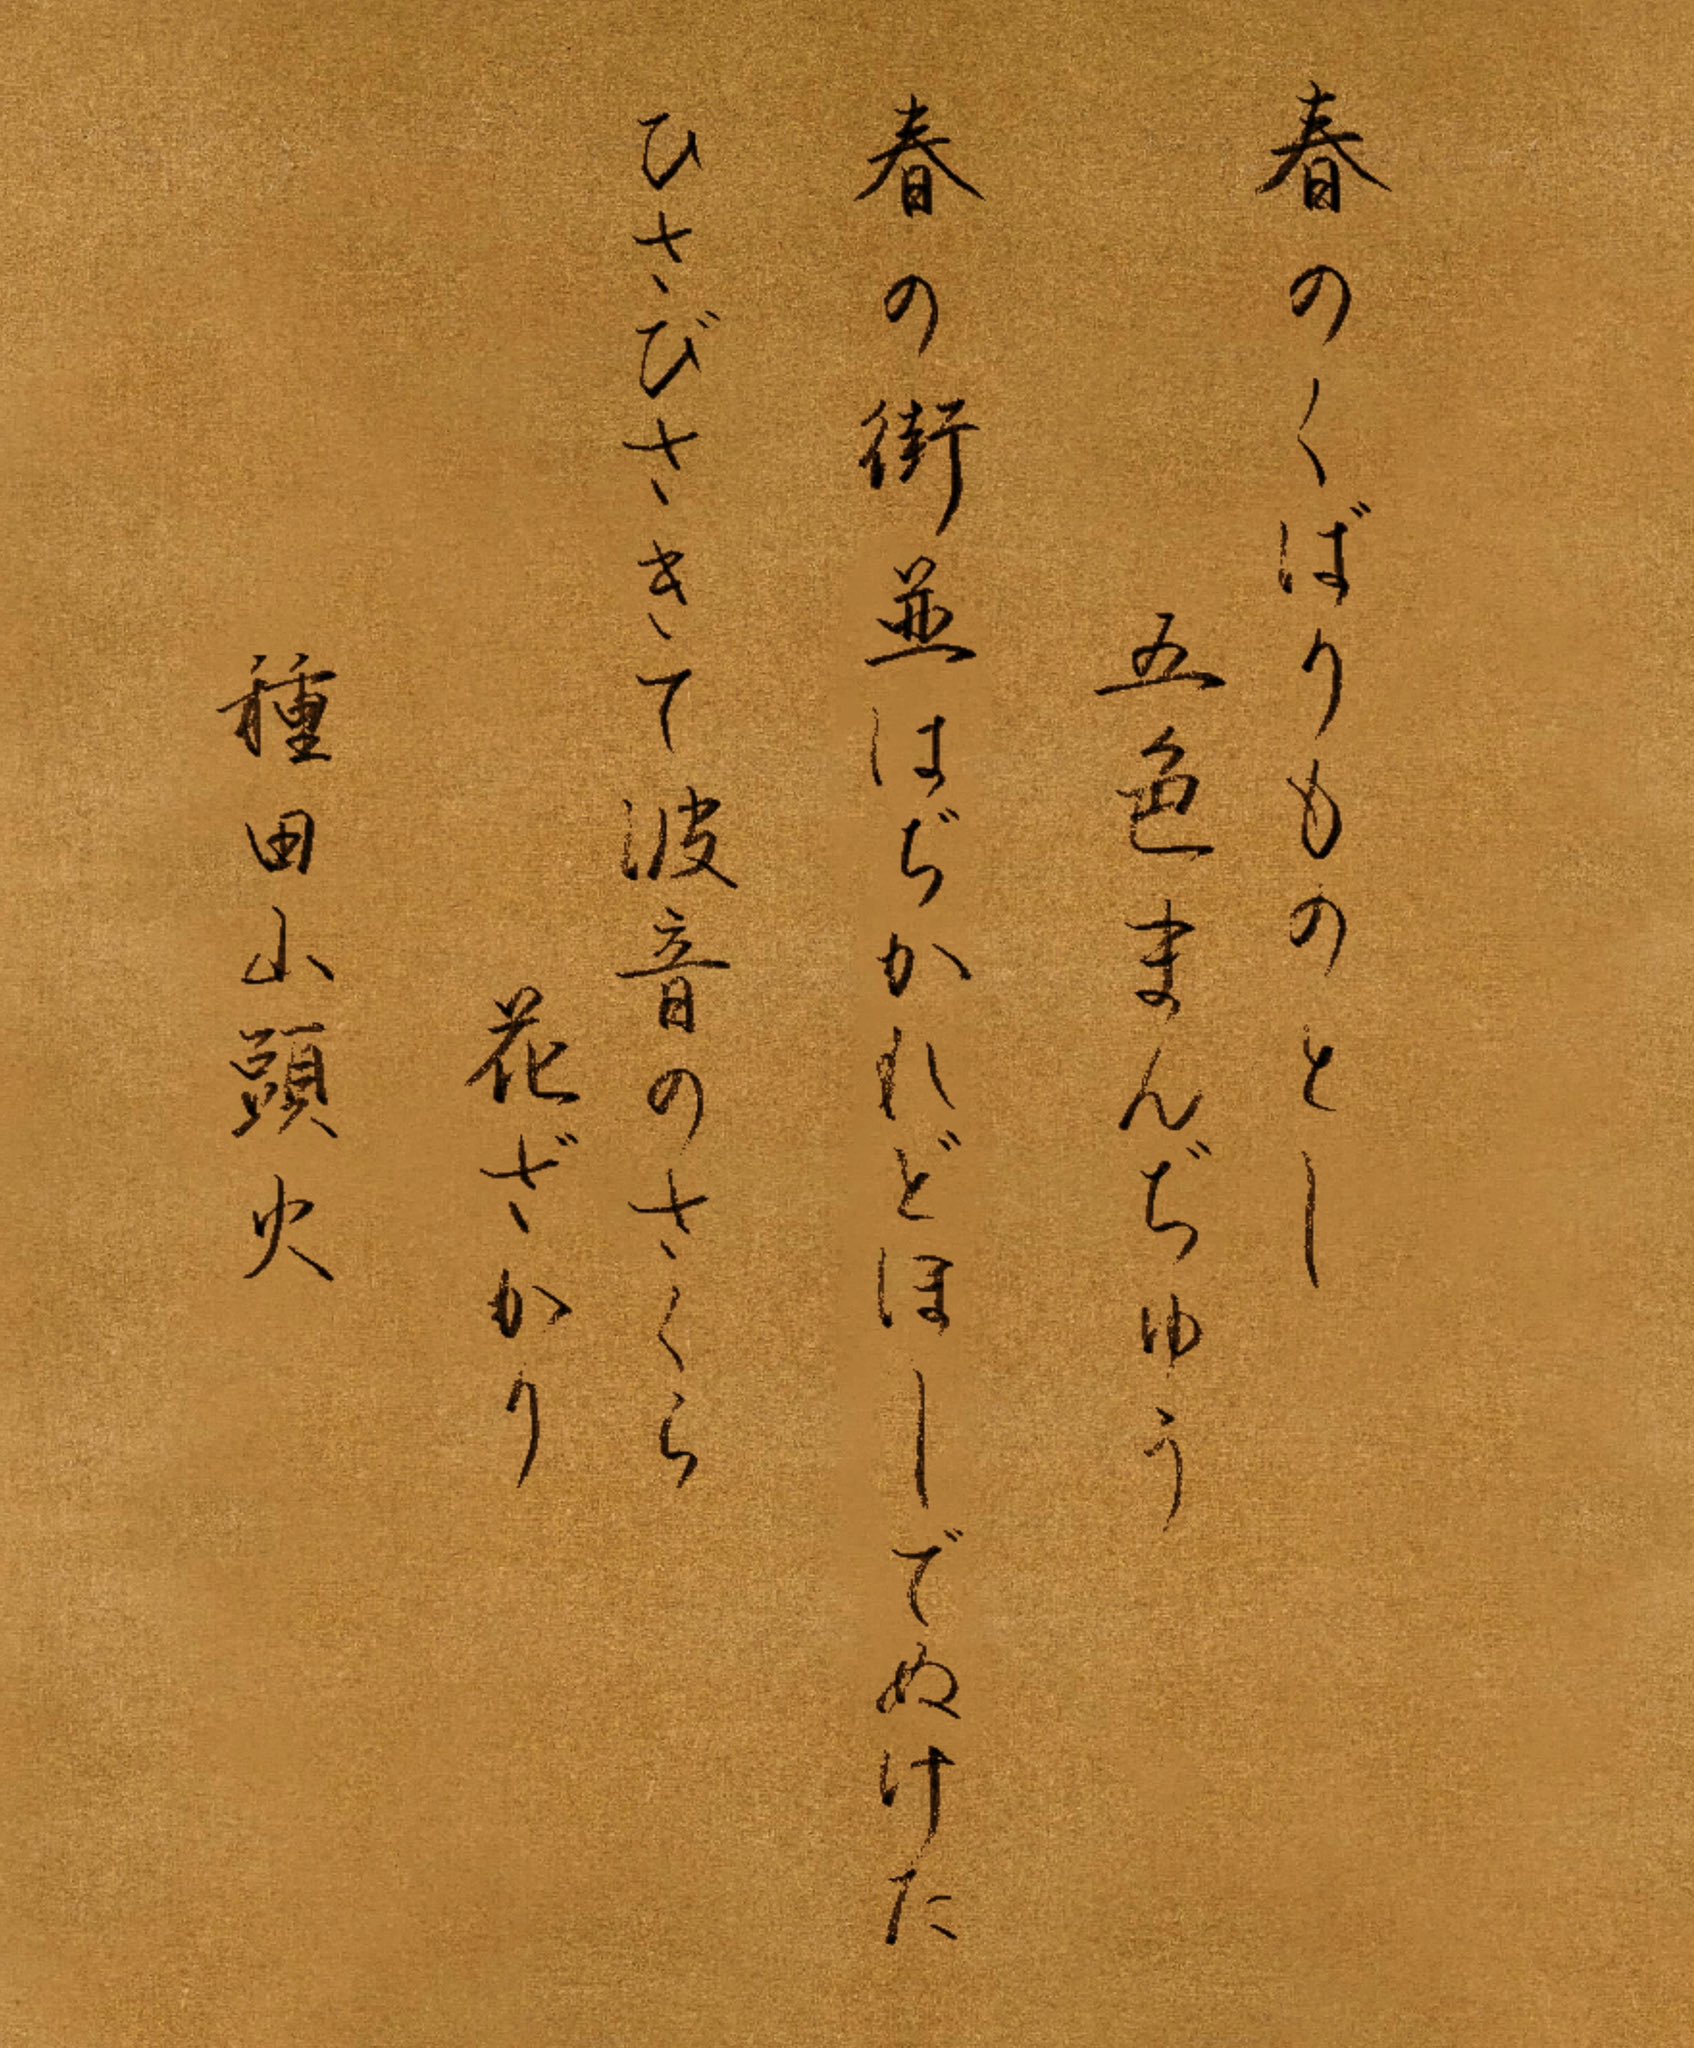 春のくばりものとし
五色まんぢゆう
春の街並はぢかれどほしでぬけた
ひさびさきて波音のさくら
花ざかり
種田山頭火